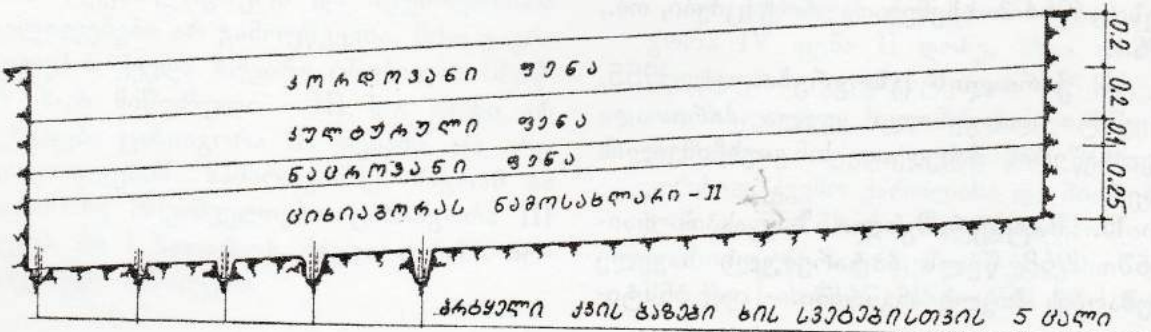 კორდოვანი ფენა
კულტურული ფენა
ნაცროვანი ფენა
ციხიაგორას ნამოსახლარი - II
ბრტყელი ქვის ბაზები ხის სვეტებისთვის 5 ცალი
0.2
0.2
0.1
0.25